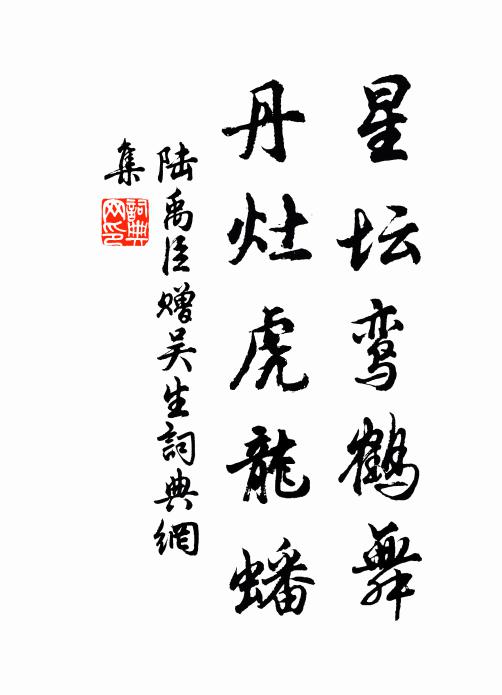 星坛鸾鹤舞
丹灶虎龍蟠
陆禹臣赠吴生詞典網
集
詞典网印